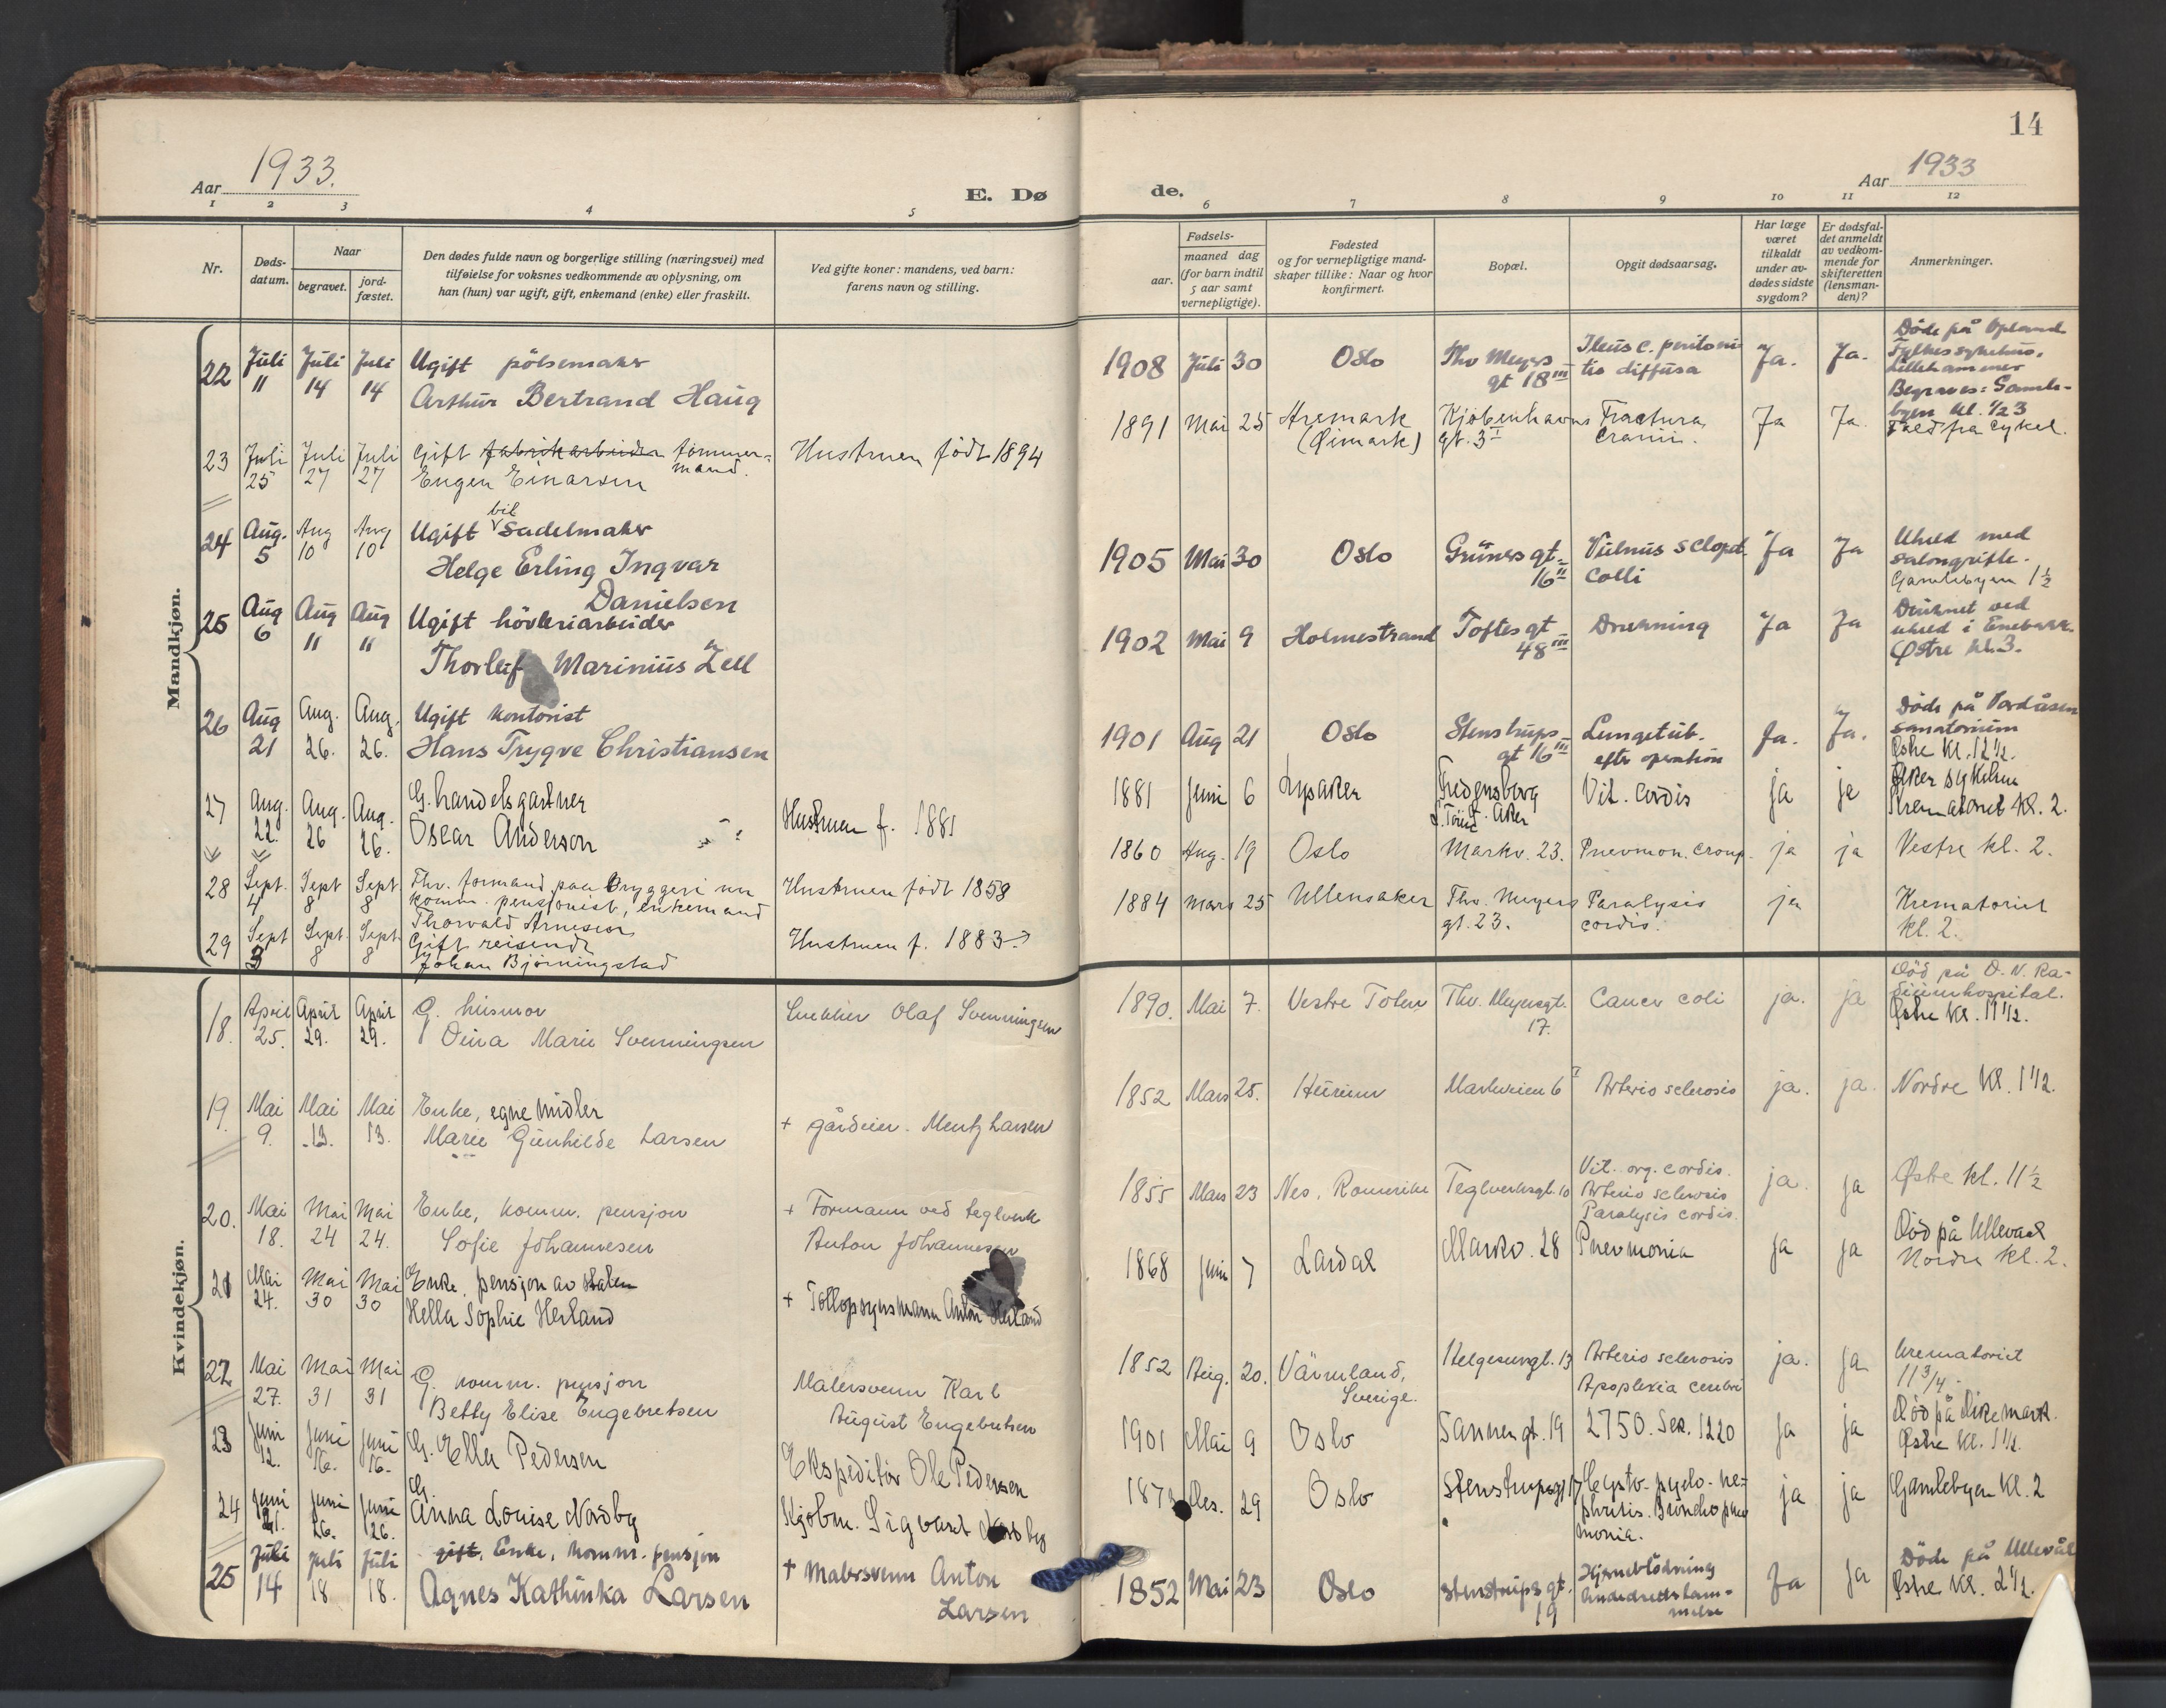 14
Aar 1933.
E. Dø
de.
Aar 1933
1 2 3 4 5
6 7 8 9 10 11 12
Nr.
Døds-
datum.
Naar
begravet.
jord-
fæstet.
Den dødes fulde navn og borgerlige stilling (næringsvei) med
tilføielse for voksnes vedkommende av oplysning, om
han (hun) var ugift, gift, enkemand (enke) eller fraskilt.
Ved gifte koner: mandens, ved barn:
farens navn og stilling.
Fødsels-
aar.
maaned dag
(for barn indtil
5 aar samt
vernepligtige).
Fødested
og for vernepligtige mand-
skaper tillike: Naar og hvor
konfirmert.
Bopæl.
Opgit dødsaarsag.
Har læge
været
tilkaldt
under av-
dødes sidste
sygdom?
Er dødsfal-
det anmeldt
av vedkom-
mende for
skifteretten
(lensman-
den)?
Anmerkninger.
Mandkjøn.
22 Juli 11 Juli 14 Juli 14 Ugift pölsemaker
Arthur Bertrand Haug
1908 Juli 30 Oslo Thv Meyers
gt 18 III Ileus c. peritoni
tis diffusa Ja. Ja. Döde på Opland
Fylkessykehus,
Lillehammer
Begraves: Gamle-
byen kl. 1/2 3
23 Juli 25 Juli 27 Juli 27 Gift fabrikarbeider tömmer-
mand.
Eugen Einarsen
Hustruen födt 1894
1891 Mai 25 Aremark
(Öimark) Kjöbenhavns
gt. 3 II Fractura
cranii. Ja Ja. Fald fra cykel.
24 Aug. 5 Aug 10 Aug 10 Ugift bil sadelmaker
Helge Erling Ingvar
Danielsen
1905 Mai 30 Oslo Grüners gt.
16 II Vulnus sclopet.
colli Ja Ja Uheld med
salongrifle.
Gamlebyen 1 1/2
25 Aug 6 Aug 11 Aug 11 Ugift hövleriarbeider
Thorleif Marinius Zell
1902 Mai 9 Holmestrand Toftes gt
48 III Drukning Ja Ja Druknet ved
uheld i Enebakk.
Østre kl. 3.
26 Aug 21 Aug. 26. Aug. 26. Ugift kontorist
Hans Trygve Christiansen
1901 Aug 21 Oslo Stenstrups
gt 16 III Lungetub.
efter operation Ja. Ja. Döde på Vardåsen
sanatorium
Østre Kl. 12 1/2.
27 Aug. 22. Aug. 26 Aug. 26. G. handelsgartner
Oscar Anderson
Hustruen f. 1881
1881 Juni 6 Lysaker Fredensborg
Aker Vit. cordis ja ja Aker sykehus
Krematoriet Kl. 2.
28 Sept. 4 Sept 8 Sept. 8 Fhv. formand paa bryggeri nu
komm. pensjonist, enkemand
Thorvald Arnesen
Hustruen födt 1858
1860 Aug. 19 Oslo Markv. 23. Pnevmon. croup. ja ja Vestre kl. 2.
29 Sept 3 Sept. 8 Sept. 8 Gift reisende
Johan Bjørningstad
Hustruen f. 1883
1884 Mars 25 Ullensaker Thv. Meyers
gt. 23. Paralysis
cordis. ja Krematoriet
kl. 2.
Kvindekjøn.
18. April 25. April 29. April 29. G. husmor
Oina Marie Svenningsen
Snekker Olaf Svenningsen
1890. Mai 7. Vestre Toten Thv. Meyersgt.
17. Cancer coli ja. ja Död på D. N. Ra-
diumhospital.
Østre Kl. 11 1/2.
19. Mai 9. Mai 13. Mai 13. Enke, egne midler
Marie Gunhilde Larsen
+ gårdeier. Mentz Larsen
1852 Mars 25. Hurum Markveien 6 I Arterio sclerosis ja. ja. Nordre Kl. 1 1/2.
20. Mai 18. Mai 24 Mai 24. Enke, komm. pensjon
Sofie Johannesen
+ Formann ved teglverk
Anton Johannesen
1855 Mars 23 Nes, Romerike Teglverksgt. 10 Vit. org. cordis.
Arterio sclerosis
Paralysis cordis. ja. ja Østre kl. 11 1/2
21 Mai 24. Mai 30 Mai 30 Enke, pensjon av staten
Hella Sophie Herland
+ Tollopsynsmann Anton Herland
1868 Juni 7 Lardal Markv. 28 Pnevmonia ja ja Död på Ullevaal
Nordre kl. 2.
22 Mai 27. Mai 31 Mai 31 G. komm. pensjon
Betty Elise Engebretsen
Malersvenn Karl
August Engebretsen
1852 Aug. 20. Värmland,
Sverige. Helgesensgt. 13 Arterio sclerosis
Apoplexia cerebri ja. ja Krematoriet
11 3/4.
23 Juni 12. Juni 16. Juni 16. G. Ella Pedersen
Ekspeditör Ole Pedersen
1901 Mai 9 Oslo Sannergt. 19 2750. Sek. 1220 ja ja Död på Dikemark.
Østre Kl. 1 1/2.
24 Juni 21. Juni 26. Juni 26. G.
Anna Louise Nordby
Kjøbm. Sigvart Nordby
Des. 29 Oslo Stenstrupsgt 17 Cysto- pyelo- ne-
phritis. Broncho pnev
monia. ja ja Gamlebyen Kl. 2
25 Juli 14 Juli 18 Juli 18. gift, Enke, komm. pensjon
Agnes Kathinka Larsen
+ Malersvenn Anton
Larsen
1852 Mai 23 Oslo Stenstrups gt.
19 Hjerneblödning
Åndedrettslam-
melse Ja Ja Döde på Ullevål
Østre Kl. 2 1/2.